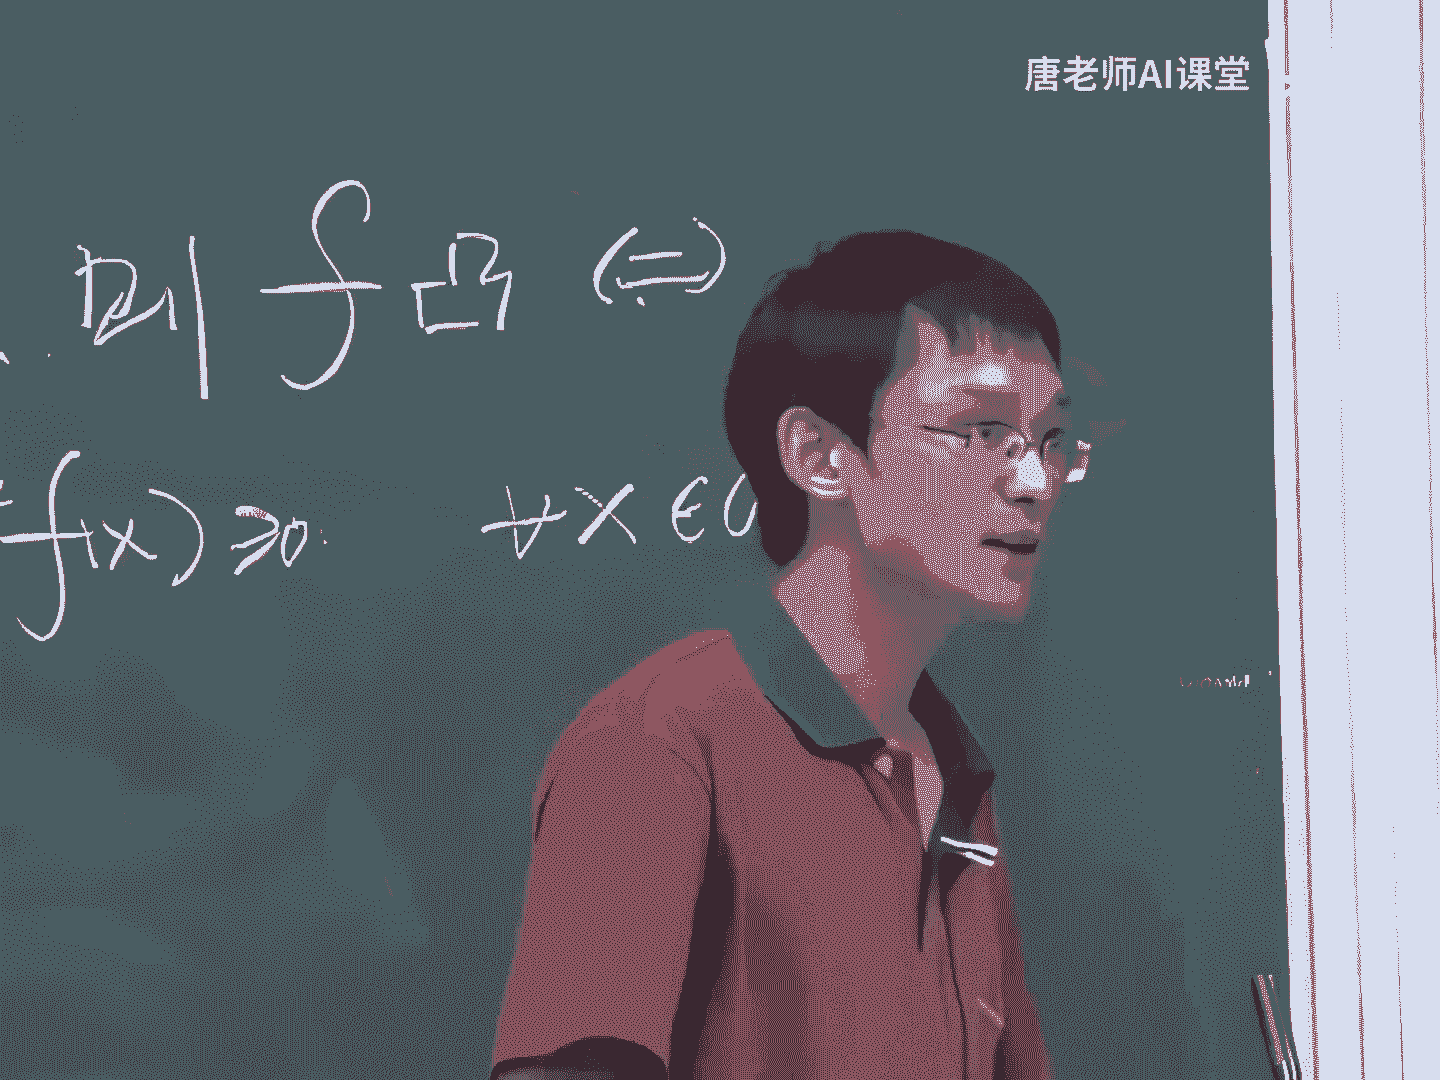 唐老师AI课堂
则 f 凸 (=)
f(x) ≥0. ∀x∈